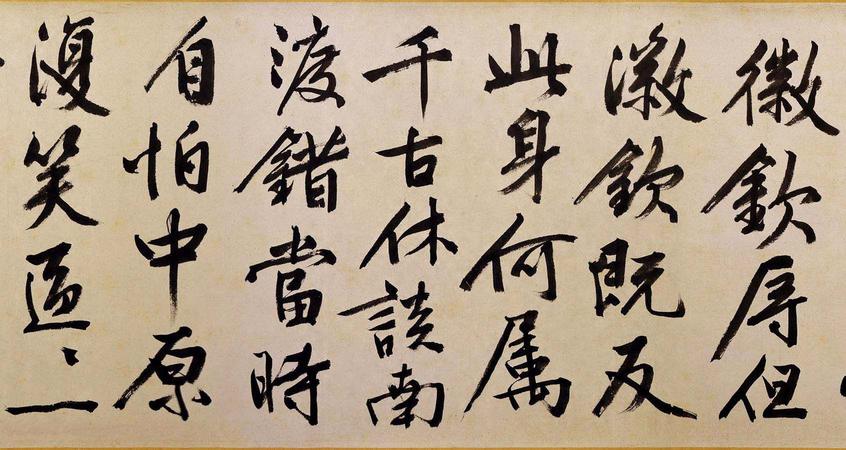 徽欽辱但
徽欽既反
此身何属
千古休談南
渡錯當時
自怕中原
復笑區〻一